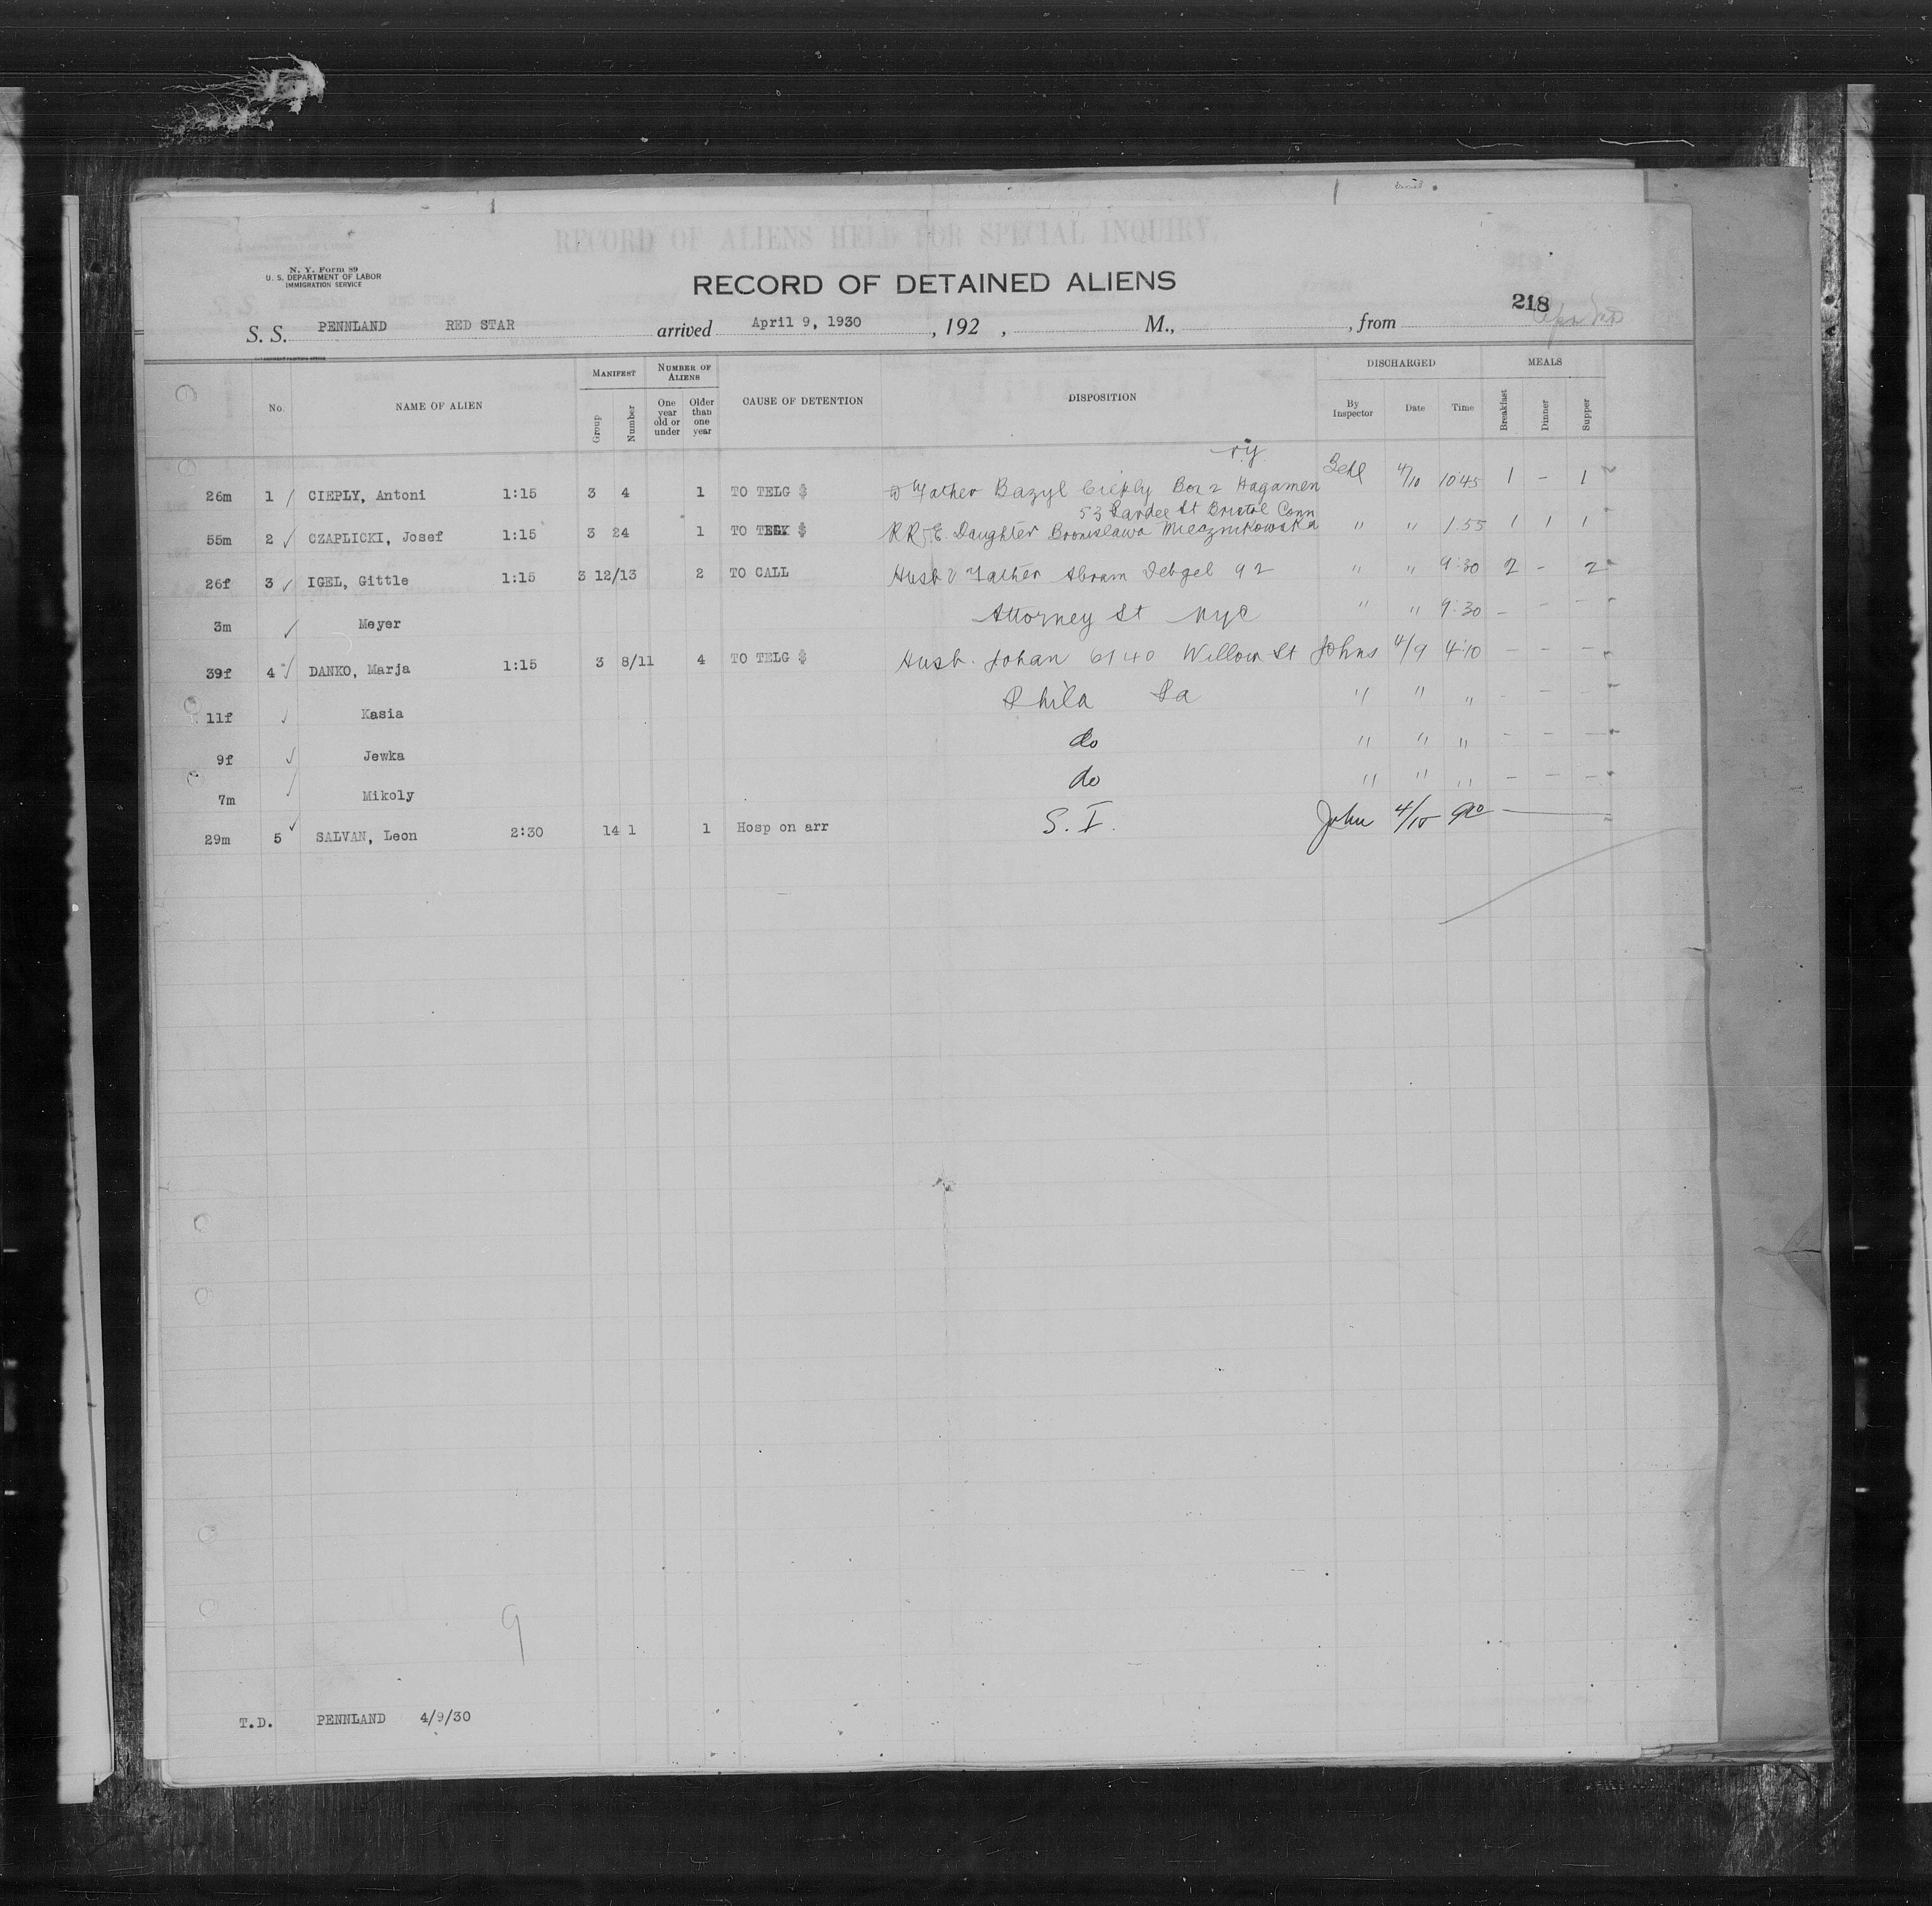 RECORD OF ALIENS HELD FOR SPECIAL INQUIRY.
N. Y. Form 89
U. S. DEPARTMENT OF LABOR
IMMIGRATION SERVICE
RECORD OF DETAINED ALIENS
218
S. S. PENNLAND RED STAR arrived April 9, 1930, 192 , M., , from
No. NAME OF ALIEN MANIFEST Group Number NUMBER OF ALIENS One year old or under Older than one year CAUSE OF DETENTION DISPOSITION DISCHARGED By Inspector Date Time MEALS Breakfast Dinner Supper
26m 1 CIEPLY, Antoni 1:15 3 4 1 TO TELG $ Father Bazyl Cieply Box 2 Hagamen 4/10 10:45 1 - 1
53 St Bristol Conn
55m 2 CZAPLICKI, Josef 1:15 3 24 1 TO $ RR Daughter Bronislawa Miecznikowska " " 1.55 1 1 1
26f 3 IGEL, Gittle 1:15 3 12/13 2 TO CALL Husb & Father Abram 92 " " 9:30 2 - 2
3m Meyer Attorney St NYC " " 9:30 - - -
39f 4 DANKO, Marja 1:15 3 8/11 4 TO TELG $ Husb. Johan 6140 Willow St Johns 4/9 4:10 - - -
11f Kasia Phila Pa " " " - - -
9f Jewka do " " " - - -
7m Mikoly do " " " - - -
29m 5 SALVAN, Leon 2:30 14 1 1 Hosp on arr S. I. John 4/10
9
T.D. PENNLAND 4/9/30